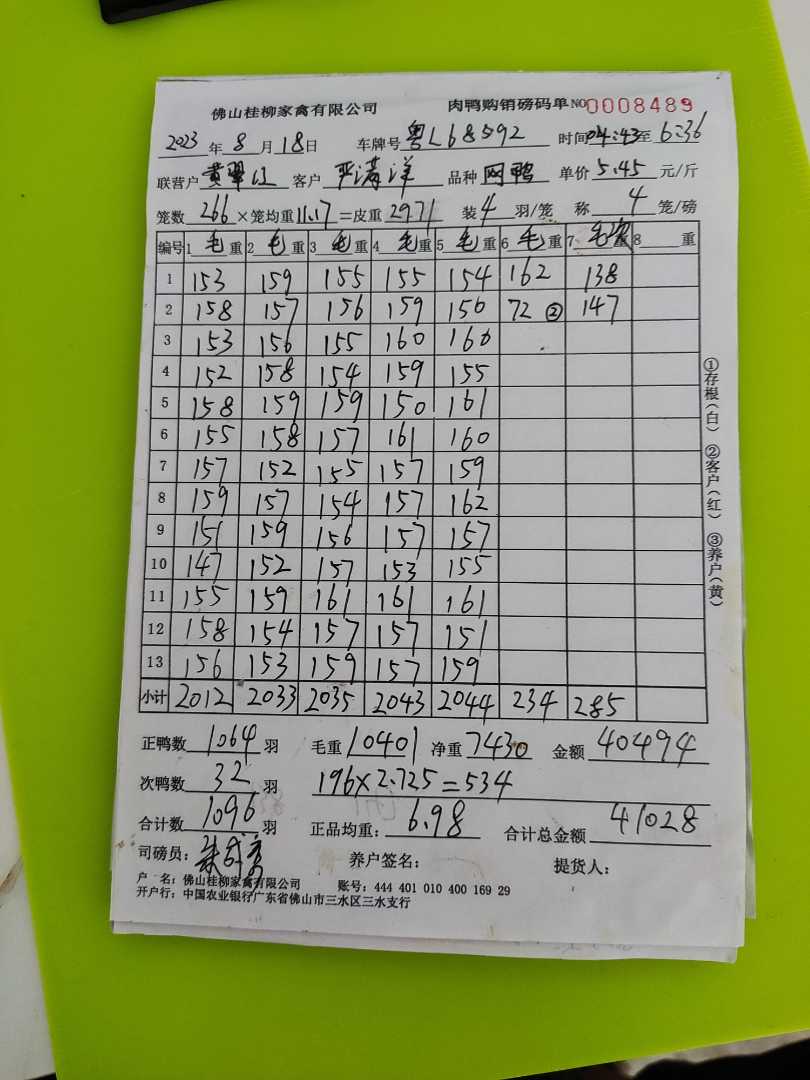 佛山桂柳家禽有限公司 肉鸭购销磅码单 NO 0008489
2023 年 8 月 18 日 车牌号 粤L68592 时间 04:43 至 6:36
联营户 黄翠江 客户 严满洋 品种 网鸭 单价 5.45 元/斤
笼数 266 ×笼均重 11.17 =皮重 2971 装 4 羽/笼 称 4 笼/磅
编号 1 毛 重 2 毛 重 3 毛 重 4 毛 重 5 毛 重 6 毛 重 7 毛 重 8 重
1 153 159 155 155 154 162 138
2 158 157 156 159 150 72 ② 147
3 153 156 155 160 160
4 152 158 154 159 155
5 158 159 159 150 161
6 155 158 157 161 160
7 157 152 155 157 159
8 159 157 154 157 162
9 151 159 156 157 157
10 147 152 157 153 155
11 155 159 161 161 161
12 158 154 157 157 151
13 156 153 159 157 159
小计 2012 2033 2035 2043 2044 234 285
①存根(白) ②客户(红) ③养户(黄)
正鸭数 1064 羽 毛重 10401 净重 7430 金额 40494
次鸭数 32 羽 196×2.725=534
合计数 1096 羽 正品均重: 6.98 合计总金额 41028
司磅员: 养户签名: 提货人:
户 名: 佛山桂柳家禽有限公司 账号: 444 401 010 400 169 29
开户行: 中国农业银行广东省佛山市三水区三水支行